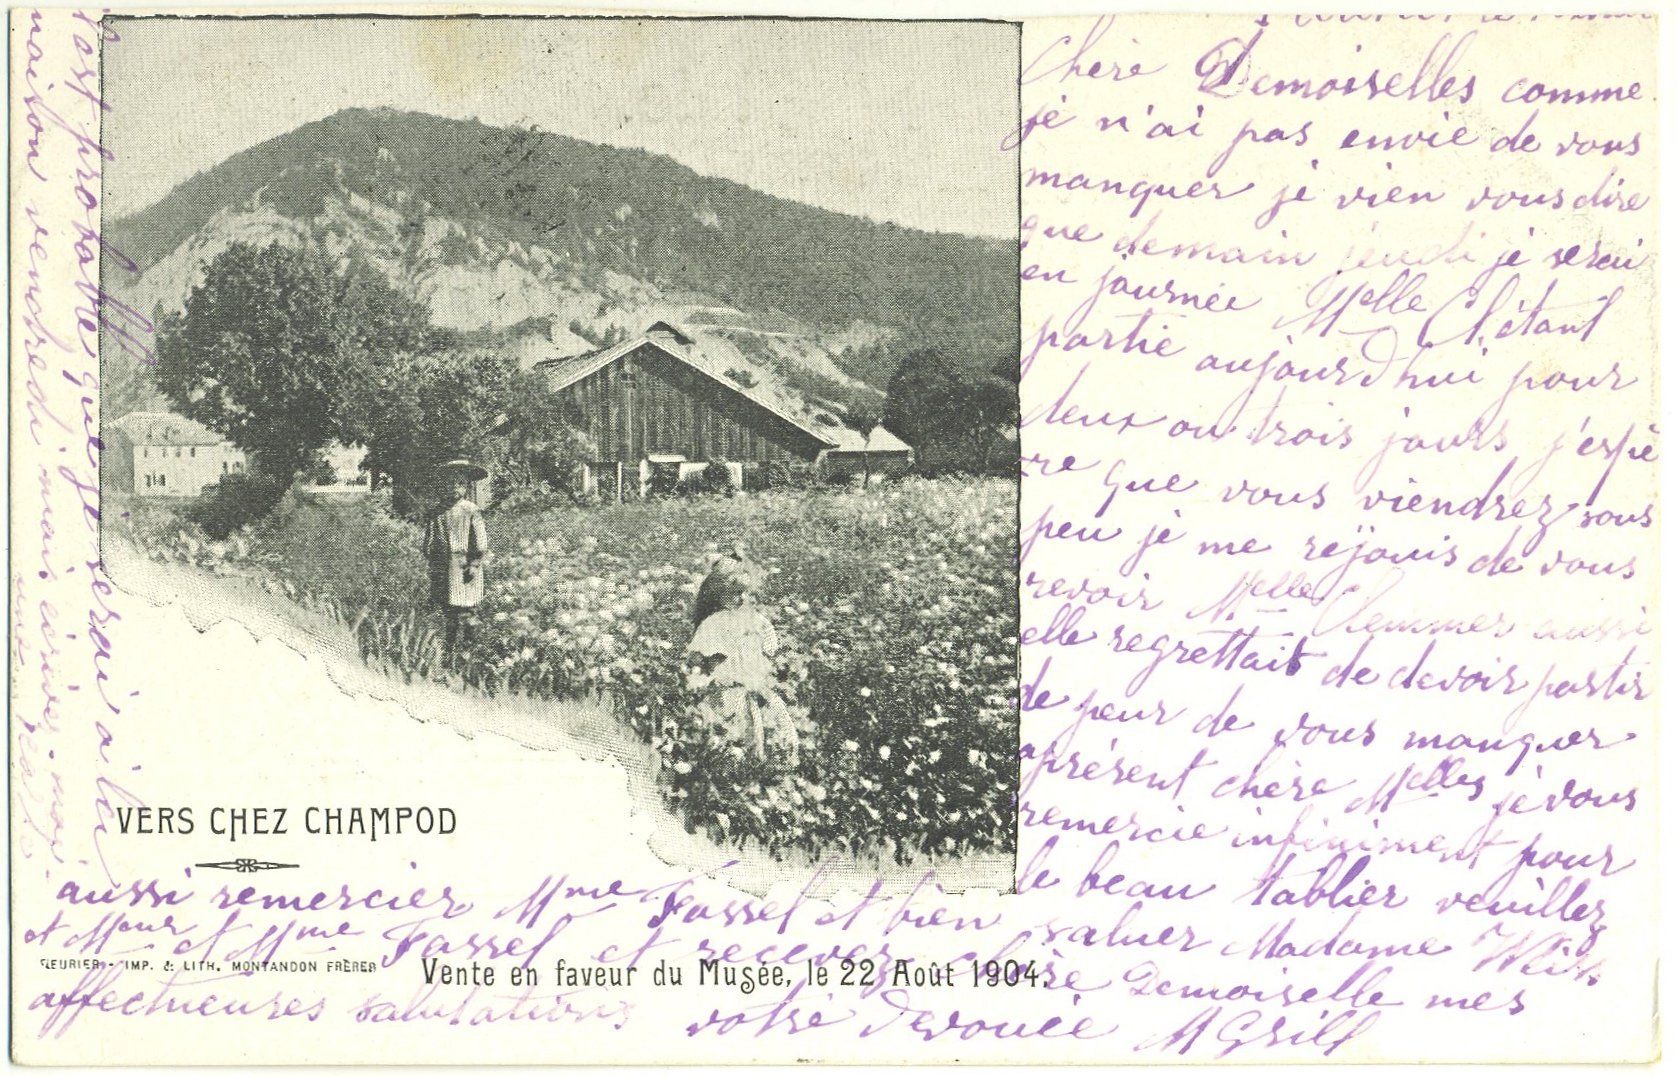 Chère Demoiselles comme
je n'ai pas envie de vous
manquer je vien vous dire
que demain jeudi je serai
en journée Melle Cl. étant
partie aujourd'hui pour
deux ou trois jours j'espè
re que vous viendrez sous
peu je me rejouis de vous
revoir Melle Clemmer aussi
elle regrettait de devoir partir
de peur de vous manquer
aprésent chère Melles je vous
remercie infiniment pour
le beau tablier veuillez
aussi remercier Mme Fassel et bien saluer Madame Weiss
et Mour et Mme Fassel et recevez chère Demoiselle mes
affectueuses salutations votre devouée M Grill
C'est probable que je serai à la
maison vendredi mais écrivez-moi
VERS CHEZ CHAMPOD
FLEURIER - IMP. & LITH. MONTANDON FRÈRES
Vente en faveur du Musée, le 22 Août 1904.